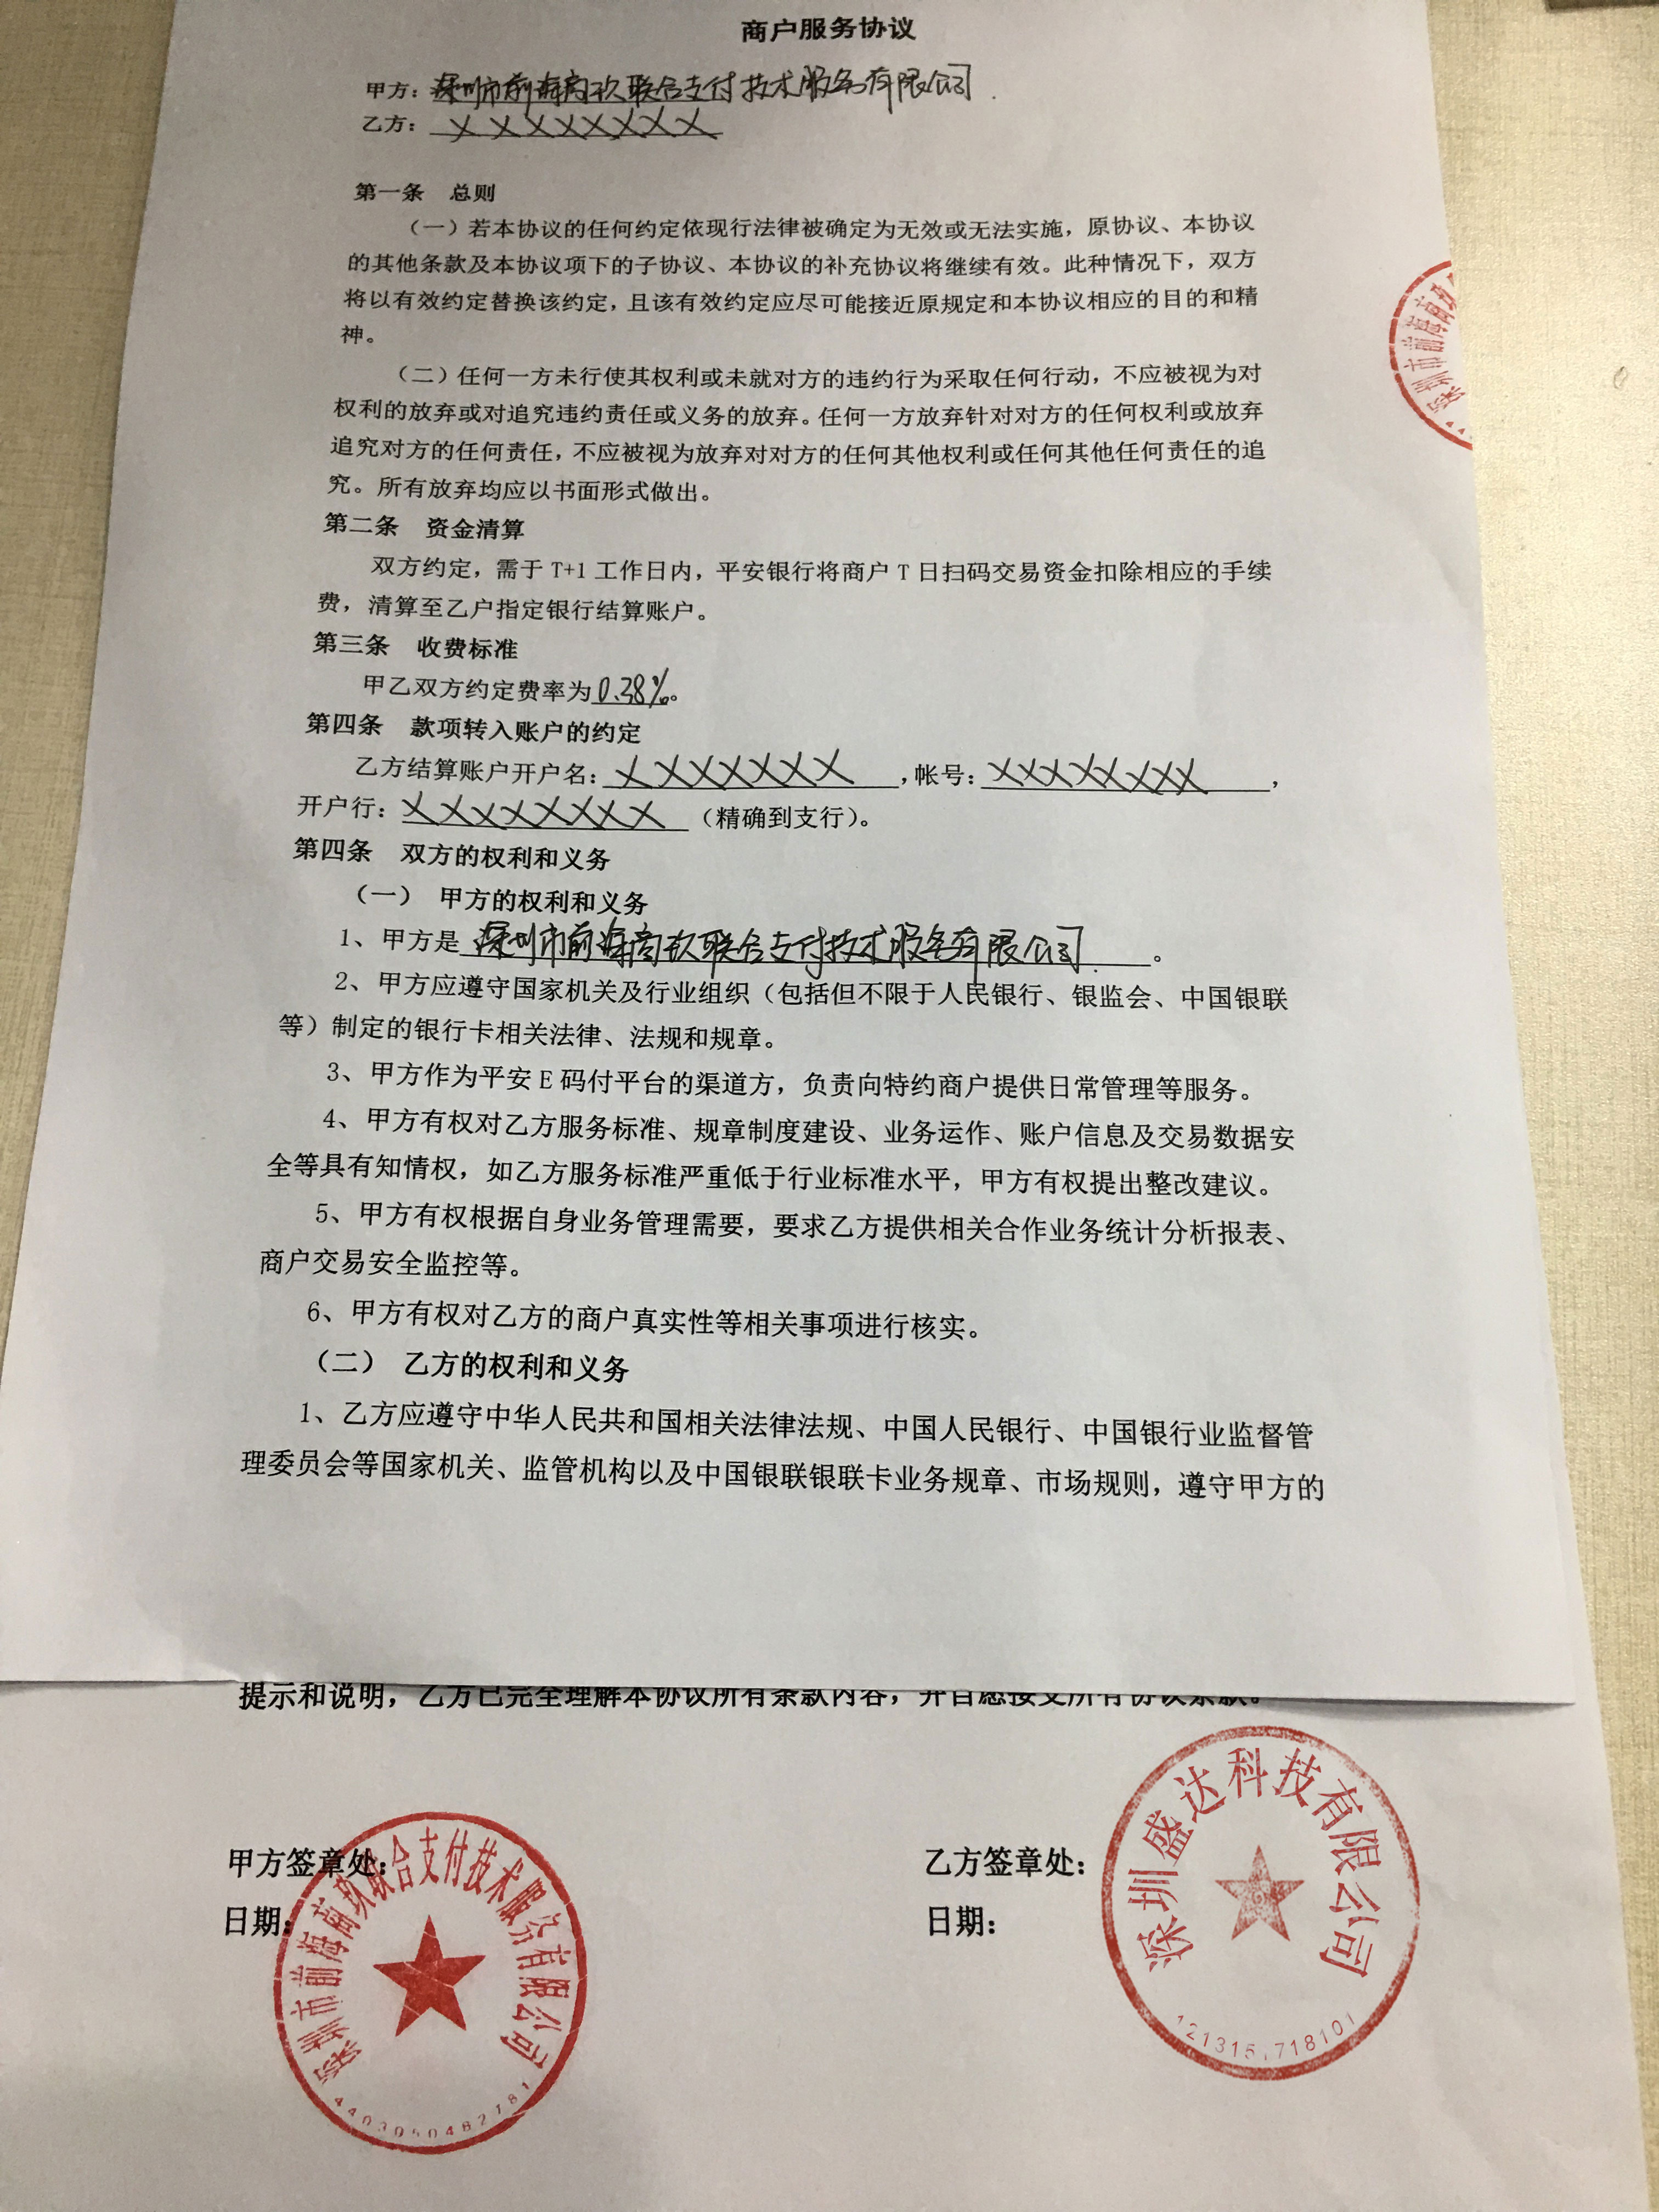 商户服务协议
甲方：深圳市前海商玖联合支付技术服务有限公司
乙方：XXXXXXXX
第一条 总则
（一）若本协议的任何约定依现行法律被确定为无效或无法实施，原协议、本协议
的其他条款及本协议项下的子协议、本协议的补充协议将继续有效。此种情况下，双方
将以有效约定替换该约定，且该有效约定应尽可能接近原规定和本协议相应的目的和精
神。
（二）任何一方未行使其权利或未就对方的违约行为采取任何行动，不应被视为对
权利的放弃或对追究违约责任或义务的放弃。任何一方放弃针对对方的任何权利或放弃
追究对方的任何责任，不应被视为放弃对对方的任何其他权利或任何其他任何责任的追
究。所有放弃均应以书面形式做出。
第二条 资金清算
双方约定，需于 T+1 工作日内，平安银行将商户 T 日扫码交易资金扣除相应的手续
费，清算至乙户指定银行结算账户。
第三条 收费标准
甲乙双方约定费率为0.38%。
第四条 款项转入账户的约定
乙方结算账户开户名：XXXXXXX，帐号：XXXXXXXX，
开户行：XXXXXXXX（精确到支行）。
第四条 双方的权利和义务
（一） 甲方的权利和义务
1、甲方是深圳市前海商玖联合支付技术服务有限公司。
2、甲方应遵守国家机关及行业组织（包括但不限于人民银行、银监会、中国银联
等）制定的银行卡相关法律、法规和规章。
3、甲方作为平安 E 码付平台的渠道方，负责向特约商户提供日常管理等服务。
4、甲方有权对乙方服务标准、规章制度建设、业务运作、账户信息及交易数据安
全等具有知情权，如乙方服务标准严重低于行业标准水平，甲方有权提出整改建议。
5、甲方有权根据自身业务管理需要，要求乙方提供相关合作业务统计分析报表、
商户交易安全监控等。
6、甲方有权对乙方的商户真实性等相关事项进行核实。
（二） 乙方的权利和义务
1、乙方应遵守中华人民共和国相关法律法规、中国人民银行、中国银行业监督管
理委员会等国家机关、监管机构以及中国银联银联卡业务规章、市场规则，遵守甲方的
深圳市前海商玖
提示和说明，乙方已完全理解本协议所有条款内容，并自愿接受所有协议条款。
甲方签章处：
日期：
深圳市前海商玖联合支付技术服务有限公司
乙方签章处：
日期：
深圳盛达科技有限公司